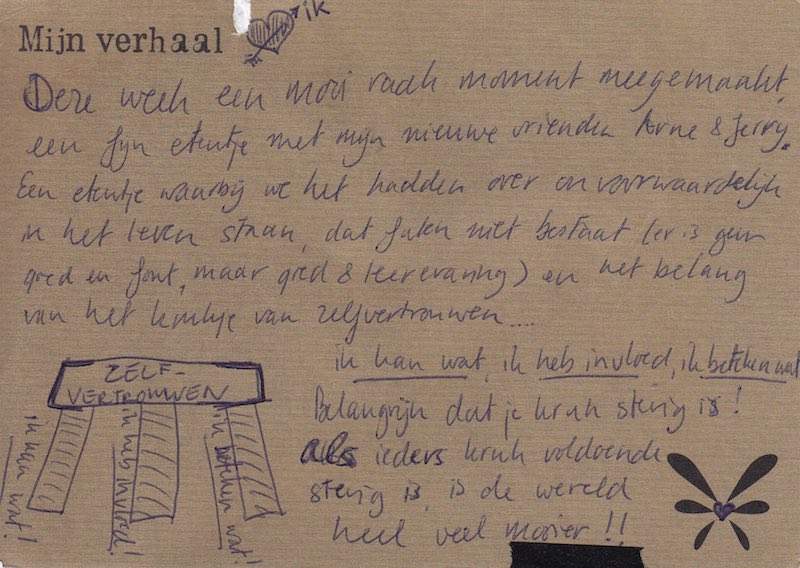 Mijn verhaal
ik
Deze week een mooi raak moment meegemaakt,
een fijn etentje met mijn nieuwe vrienden Arne & Jerry.
Een etentje waarbij we het hadden over onvoorwaardelijk
in het leven staan, dat falen niet bestaat (er is geen
goed en fout, maar goed & leerervaring) en het belang
van het krukje van zelfvertrouwen....
ik kan wat, ik heb invloed, ik beteken wat
Belangrijk dat je kruk stevig is!
als ieders kruk voldoende
stevig is, is de wereld
heel veel mooier!!
ZELF-
VERTROUWEN
ik kan wat!
ik heb invloed!
ik beteken wat!